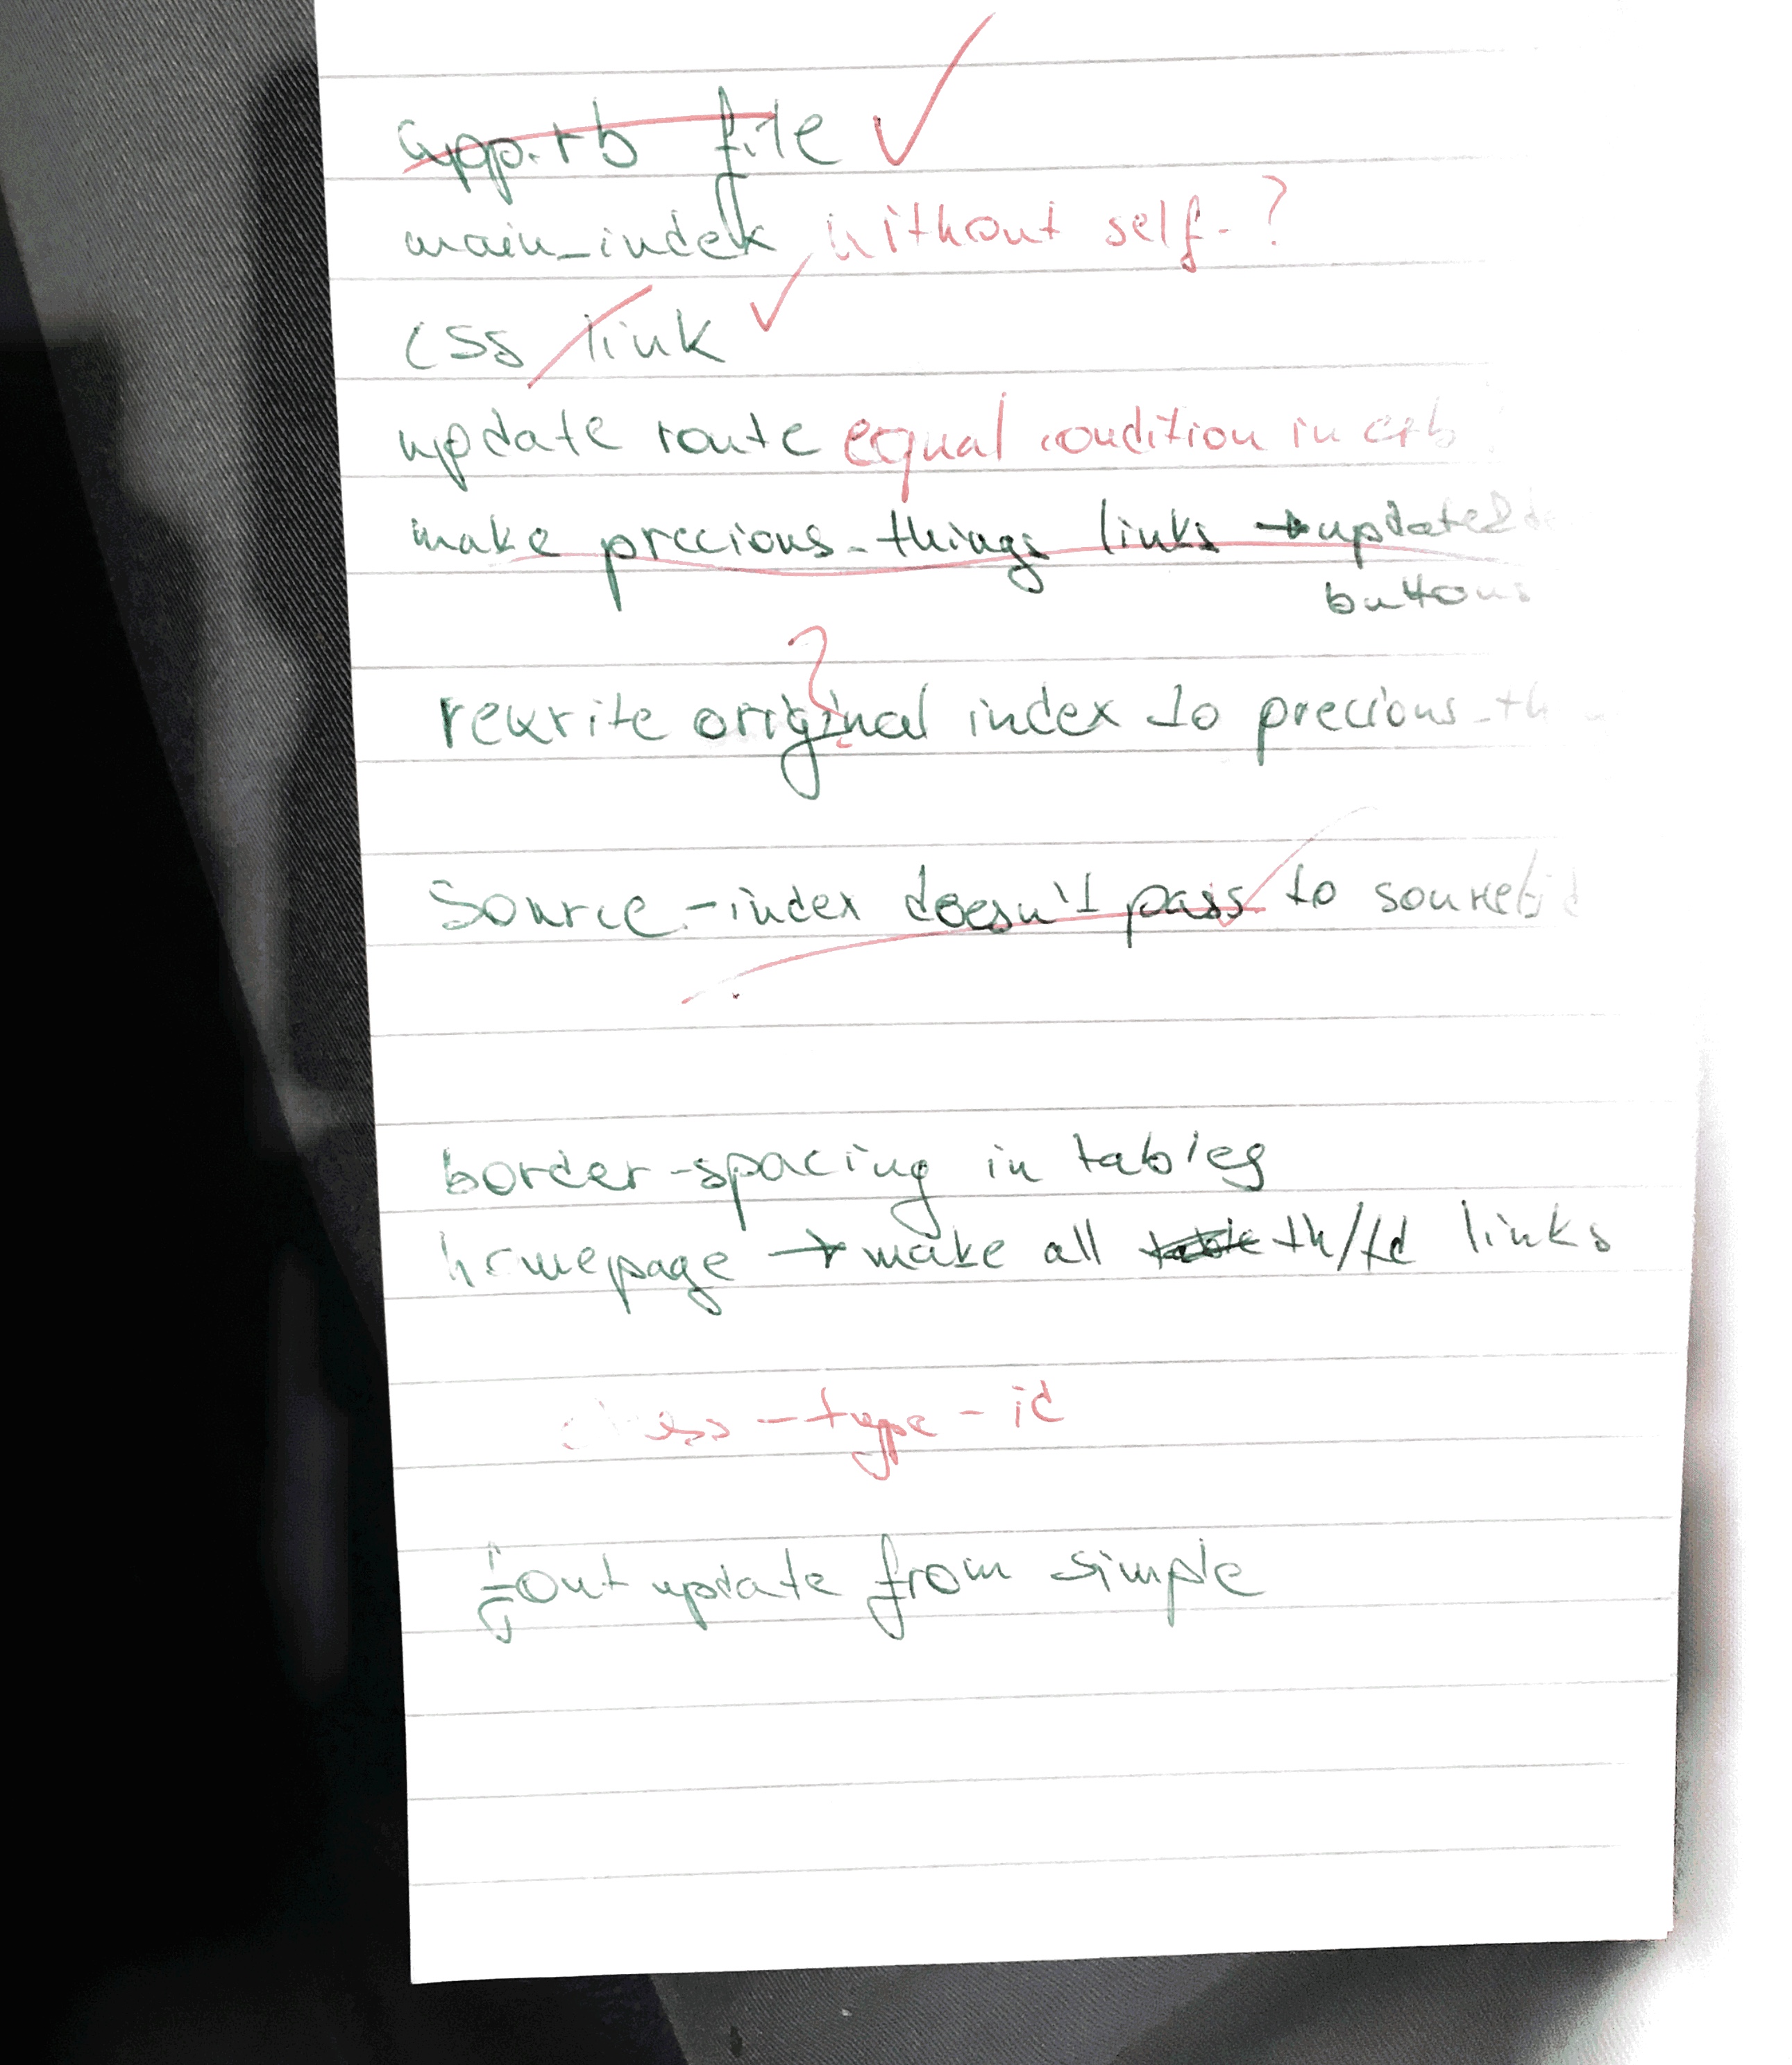 app.rb file ✓
main_index without self-?
css link ✓
update route equal condition in erb
make precious_things links → update &
buttons
rewrite original index to precious_th
Source-index doesn't pass to source/:id
border-spacing in tables
homepage → make all th/td links
-type-id
update from simple